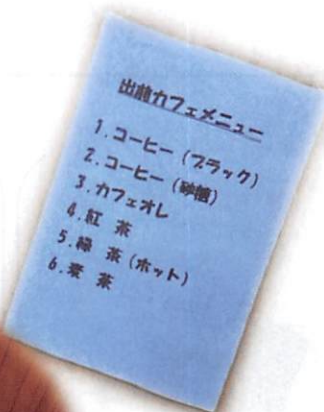 出前カフェメニュー
1.コーヒー(ブラック)
2.コーヒー(砂糖)
3.カフェオレ
4.紅 茶
5.緑 茶(ホット)
6.麦 茶